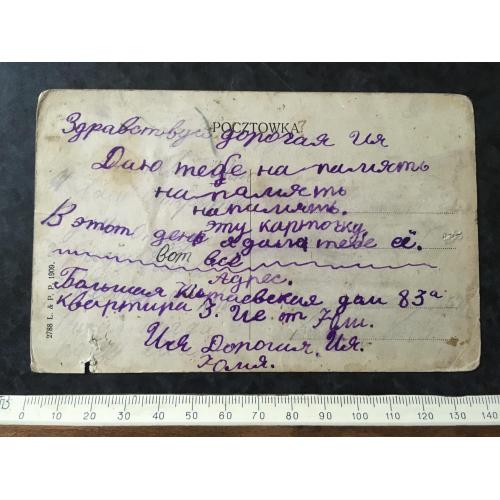 POCZTOWKA
Здравствуй дорогая Ия
Даю тебе на память
на память
на память.
эту карточку
В этот день я дала тебе её.
вот всё
Адрес.
Большая Китаевская дом 83а
квартира 3. Ие от Юли.
Ия Дорогая Ия.
Юлия.
2788 L. & P. P. 1909.
0 10 20 30 40 50 60 70 80 90 100 110 120 130 140